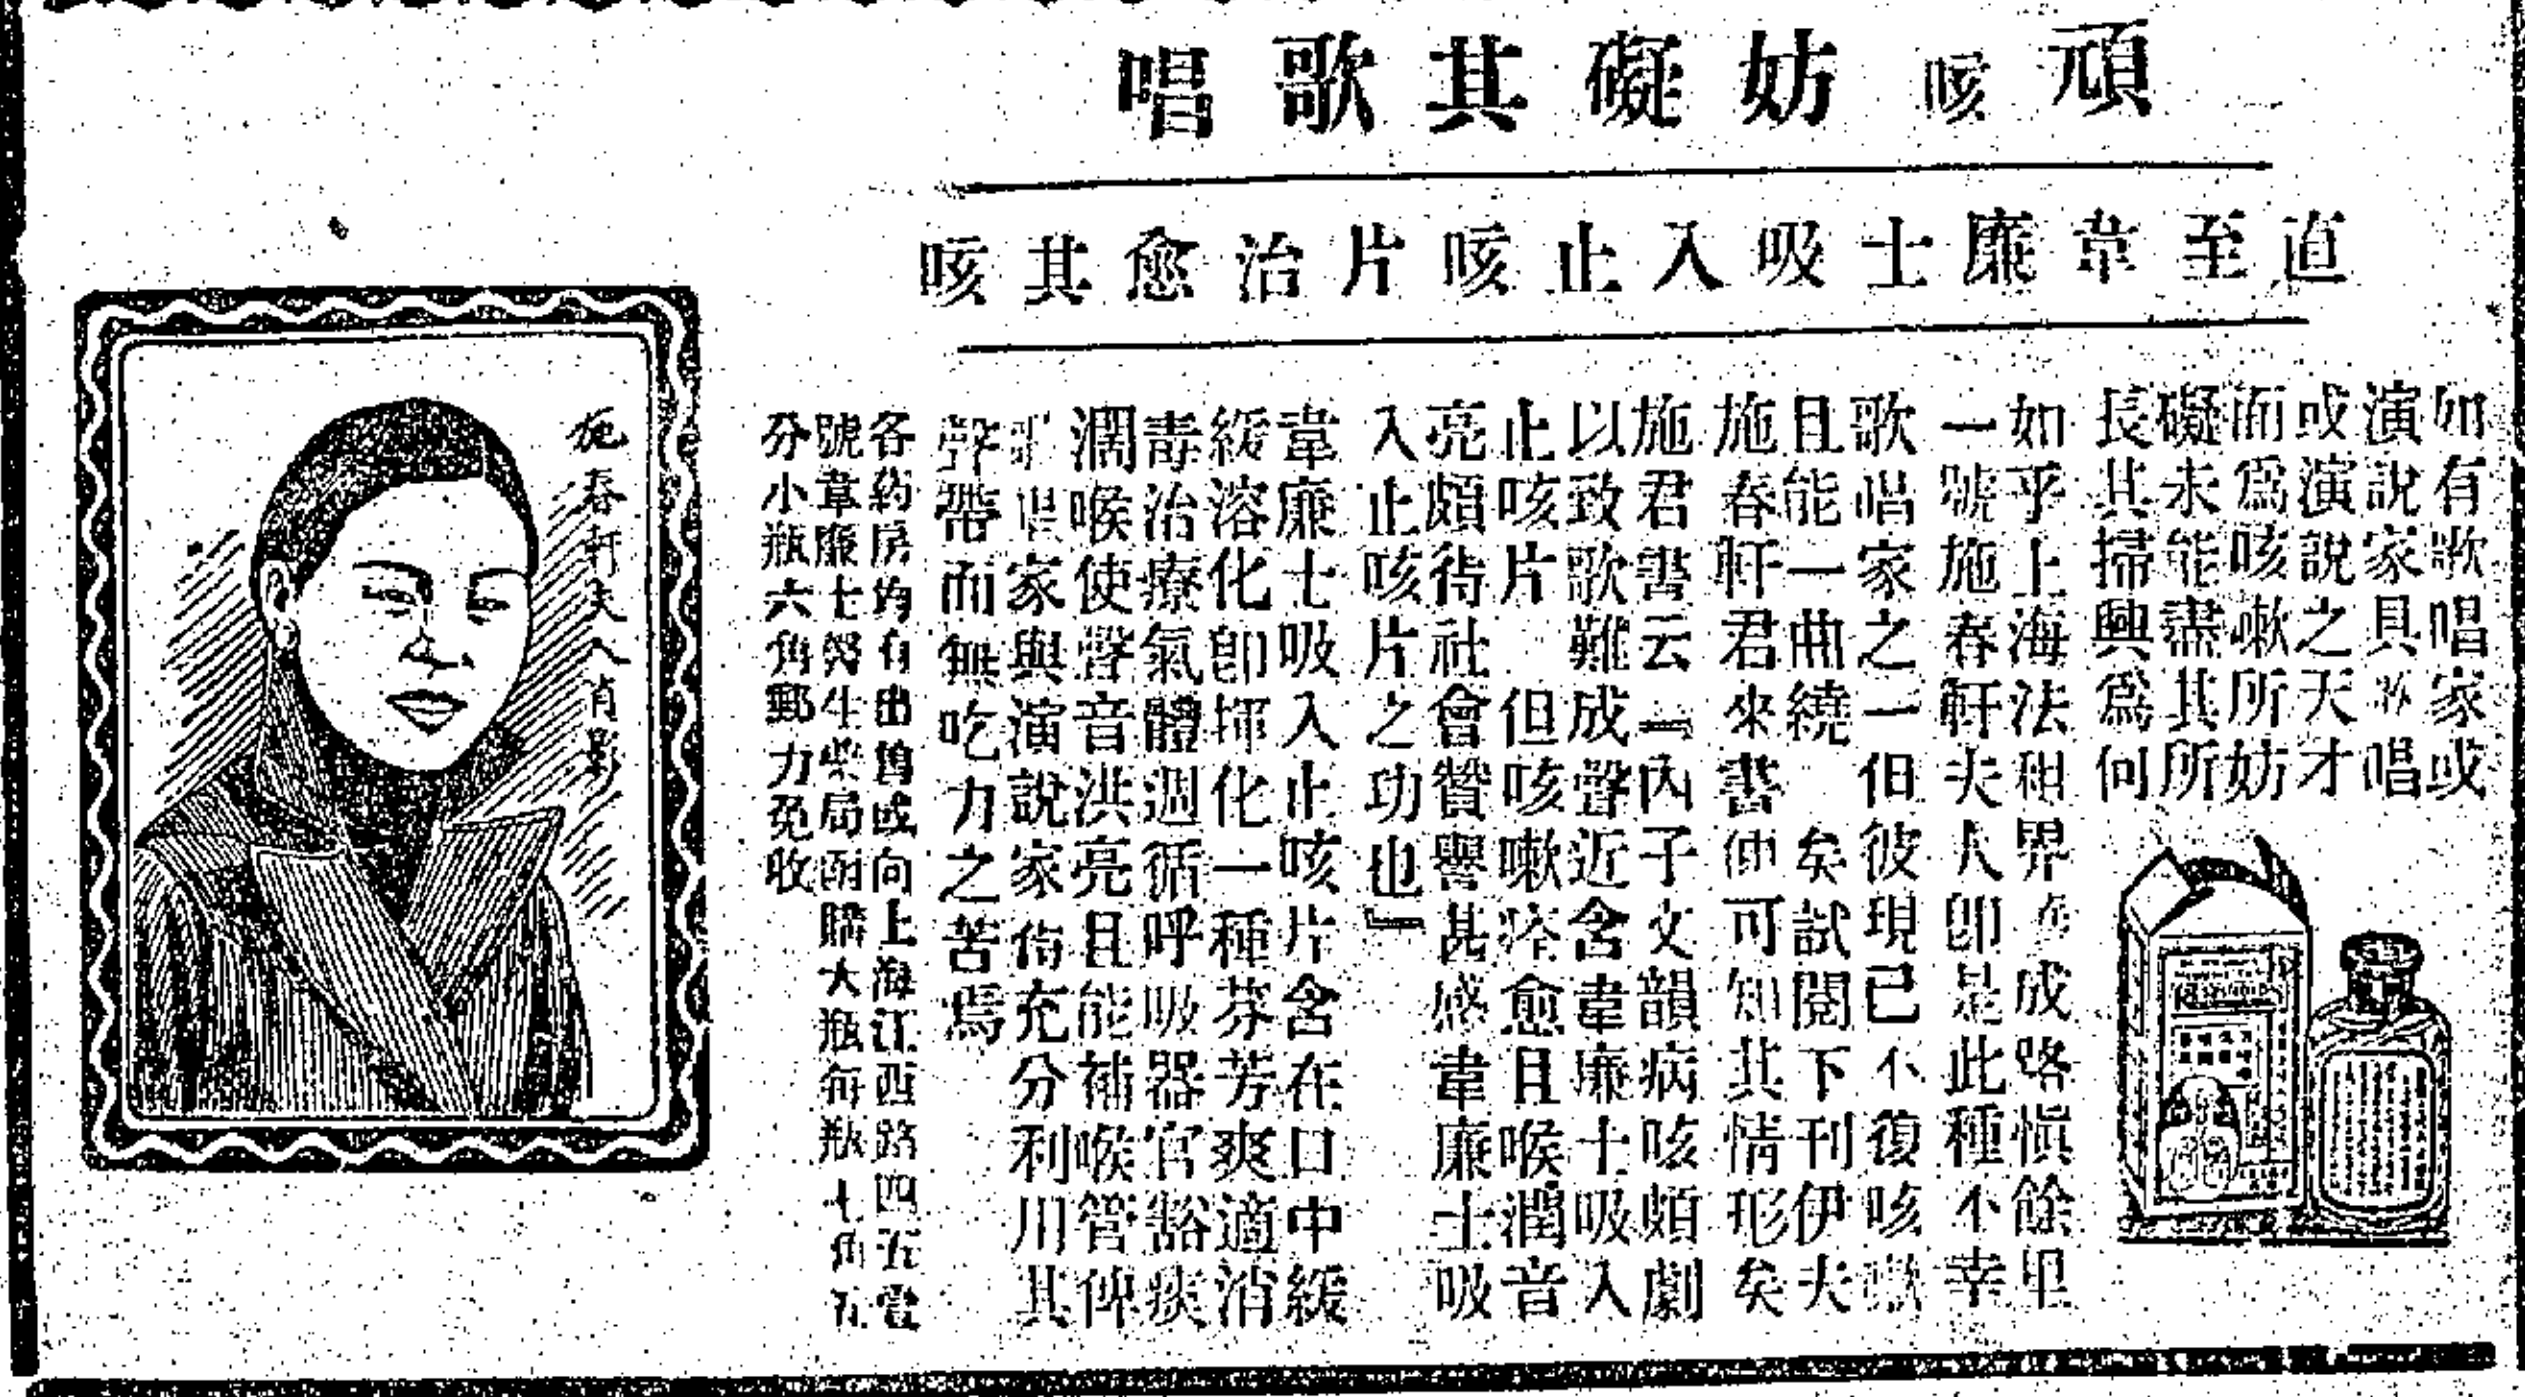 頑咳妨礙其歌唱
直至韋廉士吸入止咳片治愈其咳
如有歌唱家或
演說家具歌唱
或演說之天才
而爲咳嗽所妨
礙未能盡其所
長其掃興爲何
如乎上海法租界 成 愼餘里
一號施春軒夫人卽是此種不幸
歌唱家之一但彼現已不復咳嗽
且能一曲繞 矣試閱下刊伊夫
施春軒君來書 可知其情形矣
施君書云『內子文韻病咳頗劇
以致歌難成聲近含韋廉士吸入
止咳片 但咳嗽痊愈且喉潤音
亮頗待社會贊譽甚感韋廉士吸
入止咳片之功也』
韋廉士吸入止咳片含在口中緩
緩溶化卽揮化一種芬芳爽適消
毒治療氣體週循呼吸器官豁痰
潤喉使聲音洪亮且能補喉管俾
歌唱家與演說家 充分利用其
聲帶而無吃力之苦焉
各藥房均有出售或向上海江西路四五 
號韋廉士醫生藥局函購大瓶每瓶七角五
分小瓶六角郵力免收
施春軒夫人肖影